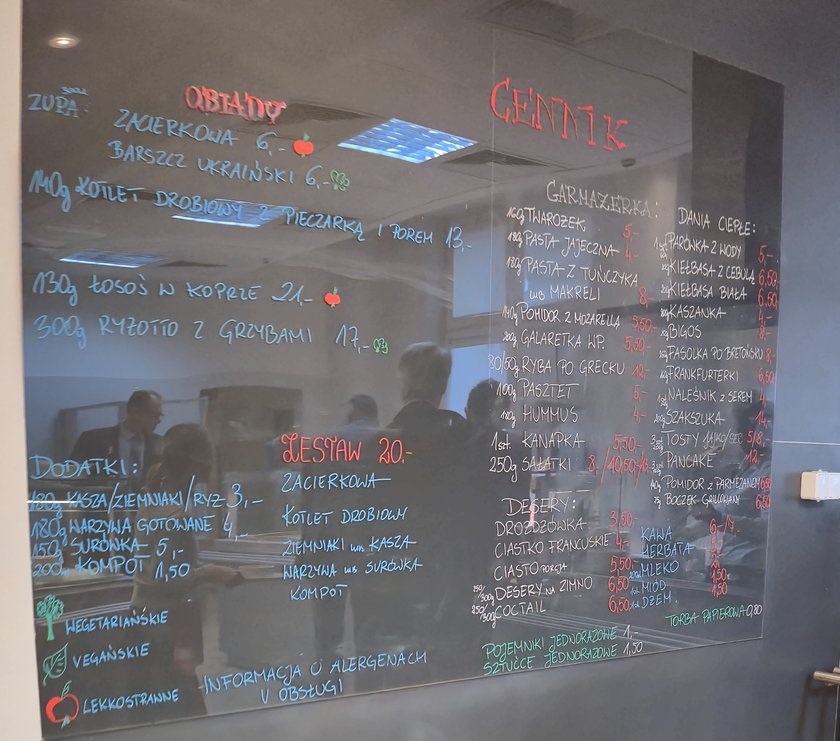 OBIADY
ZUPA:
ZACIERKOWA 6,-
BARSZCZ UKRAIŃSKI 6,-
140g KOTLET DROBIOWY Z PIECZARKĄ I POREM 13,-
130g ŁOSOŚ W KOPRZE 21,-
300g RYZOTTO Z GRZYBAMI 17,-
DODATKI:
180g KASZA/ZIEMNIAKI/RYŻ 3,-
180g WARZYWA GOTOWANE 4,-
150g SURÓWKA 5,-
KOMPOT 1,50
ZESTAW 20.-
ZACIERKOWA
KOTLET DROBIOWY
ZIEMNIAKI lub KASZA
WARZYWA lub SURÓWKA
KOMPOT
WEGETARIAŃSKIE
VEGAŃSKIE
LEKKOSTRAWNE
-INFORMACJA O ALERGENACH
U OBSŁUGI
CENNIK
GARMAŻERKA:
TWAROŻEK 5,-
PASTA JAJECZNA 4,-
PASTA Z TUŃCZYKA
lub MAKRELI 8,-
140g POMIDOR Z MOZARELLA 5,50
GALARETKA WP. 5,50
80/50g RYBA PO GRECKU 12,-
100g PASZTET 5,-
HUMMUS 4,-
1szt. KANAPKA 5,50,-
250g SAŁATKI
DESERY:
DROŻDŻÓWKA 3,50
CIASTKO FRANCUSKIE 4,-
CIASTO PORCJA 5,50
DESERY NA ZIMNO 6,50
COCTAIL 6,50
DANIA CIEPŁE:
PARÓWKA Z WODY 5,-
KIEŁBASA Z CEBULĄ 6,50
KIEŁBASA BIAŁA 6,50
KASZANKA 4,-
BIGOS 8,-
FASOLKA PO BRETOŃSKU 8,-
FRANKFURTERKI 6,50
NALEŚNIK Z SEREM 4,-
SZAKSZUKA 14,-
TOSTY 5/8,-
PANCAKE 12,-
POMIDOR Z PARMEZANEM 6,50
BOCZEK GRILLOWANY 6,50
KAWA 6-/7.
HERBATA
MLEKO
MIÓD 1,50
DŻEM 1,50
TORBA PAPIEROWA 0,80
POJEMNIKI JEDNORAZOWE 1,-
SZTUĆCE JEDNORAZOWE 1,50